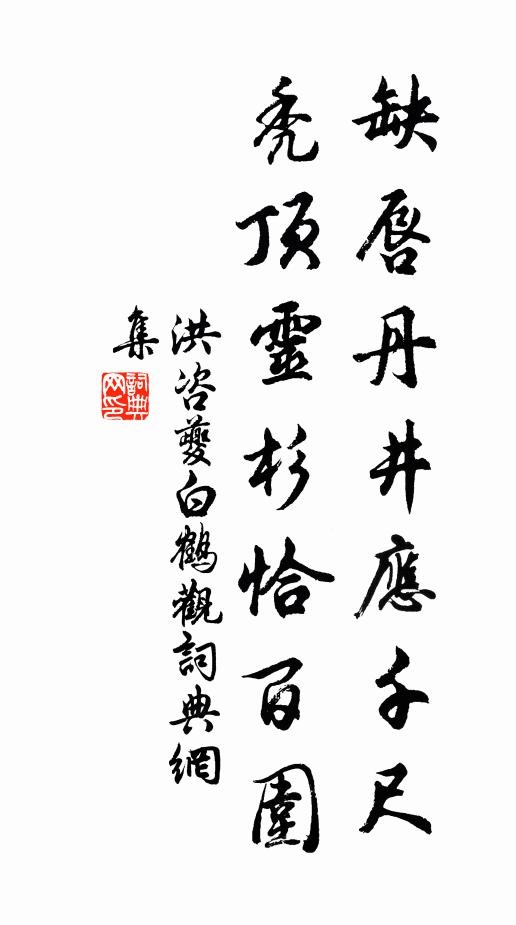 缺唇丹井應千尺
禿頂靈杉恰百圍
洪咨夔白鶴觀詞典網
集
詞典
网印